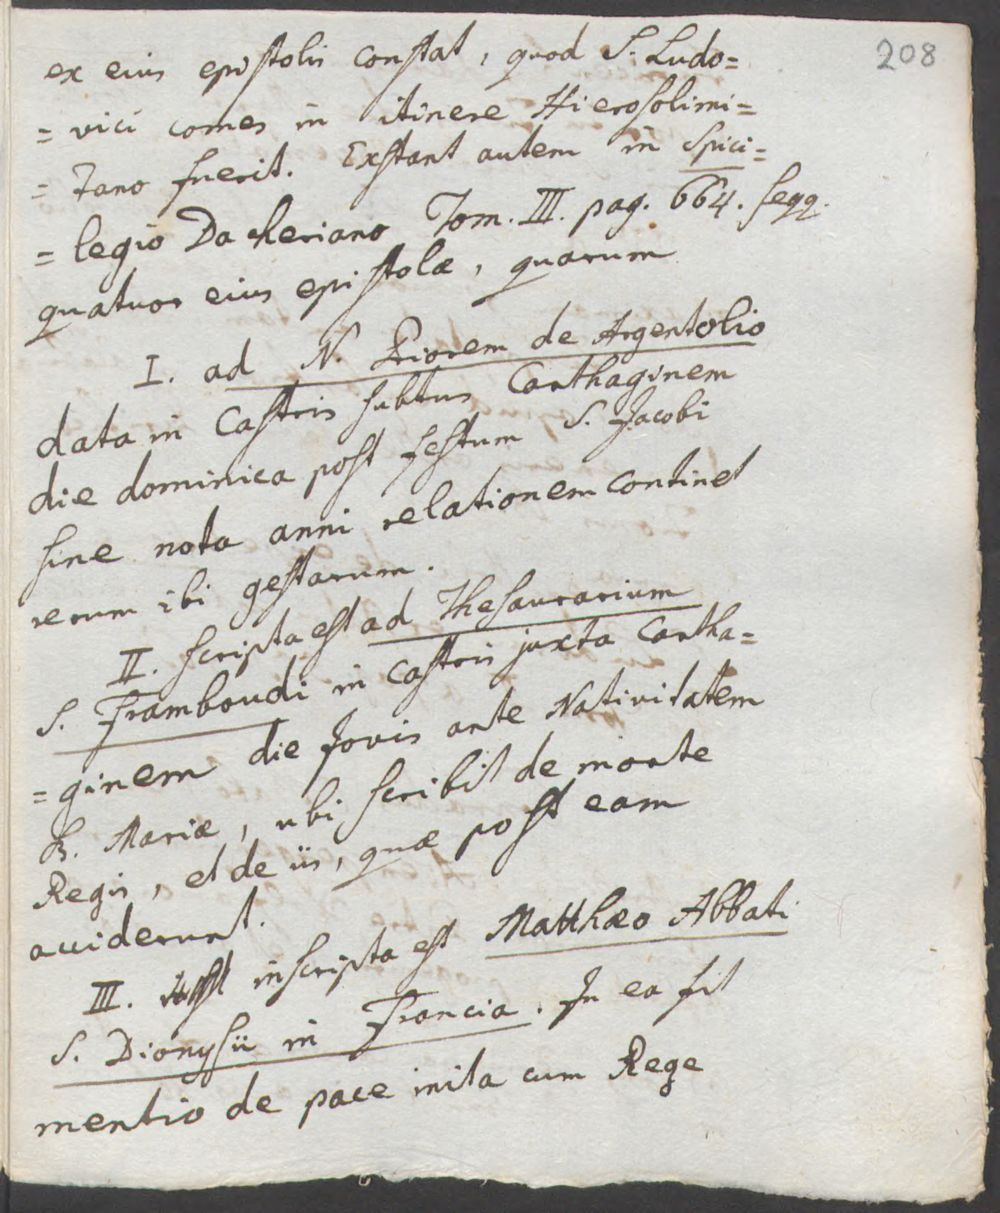 208
ex eius epistolis constat, quod S. Ludo=
= vici comes in itinere Hierosolimi=
= tano fuerit. Exstant autem in Spici=
= legio Dacheriano Tom. III. pag. 664. seqq.
quatuor eius epistolæ, quarum
I. ad N. Priorem de Argentolio
data in Castris subtus Carthaginem
die dominica post festum S. Jacobi
sine nota anni relationem continet
rerum ibi gestarum.
II. scripta est ad Thesaurarium
S. Framboudi in castris juxta Cartha=
= ginem die Jovis ante Nativitatem
B. Mariæ, ubi scribit de morte
Regis, et de iis, quæ post eam
acciderunt.
III. inscripta est Matthæo Abbati
S. Dionysii in Francia. In ea fit
mentio de pace inita cum Rege